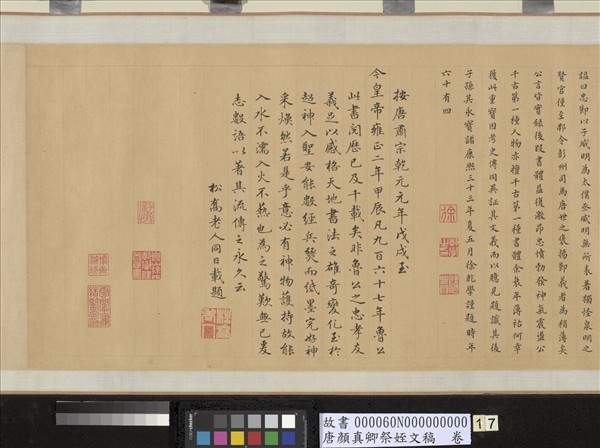 謚曰忠節以子威明為太僕丞威明無所表著獨怪泉明之
賢官僅至郫令彭州司馬唐世之褒揚節義者為稍薄矣
公言皆實錄後段書體益復激昂忠憤勃發神氣震盪公
千古第一種人物亦擅千古第一種書體余衰年薄祜何幸
獲此重寶因考史傳同異証其文義而以臆見題識其後
子孫其永寶諸康熙三十三年夏五月徐乾學謹題時年
六十有四
按唐肅宗乾元元年戊戌至
今皇帝雍正二年甲辰凡九百六十七年魯公
此書閱歷已及千載矣非魯公之忠孝友
義足以感格天地書法之雄奇變化至於
超神入聖安能數經兵燹而紙墨完好神
采煥然若是乎意必有神物護持故能
入水不濡入火不爇也為之驚歎無已爰
志數語以著其流傳之永久云
松喬老人同日載題
故書 000060N000000000 17
唐顏真卿祭姪文稿 卷